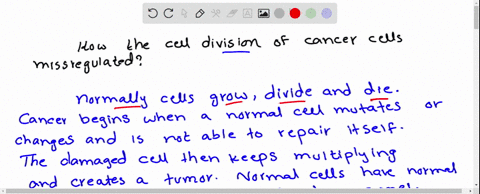 How the cell division of cancer cells
missregulated?
Normally cells grow, divide and die.
Cancer begins when a normal cell mutates or
changes and is not able to repair itself.
The damaged cell then keeps multiplying
and creates a tumor. Normal cells have normal